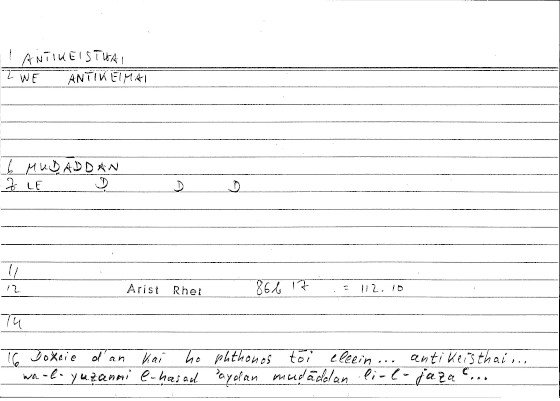 1 ANTIKEISTHAI
2 WE ANTIKEIMAI
6 MUḌĀDDAN
7 LE Ḍ D D
11
12 Arist Rhet 86b 17 = 112.10
14
16 Dokeie d'an kai ho phthonos tōi eleein... antikeisthai...
wa-l- yuẓanni l-ḥasad ʾayḍan muḍāddan li-l-jazaʿ...